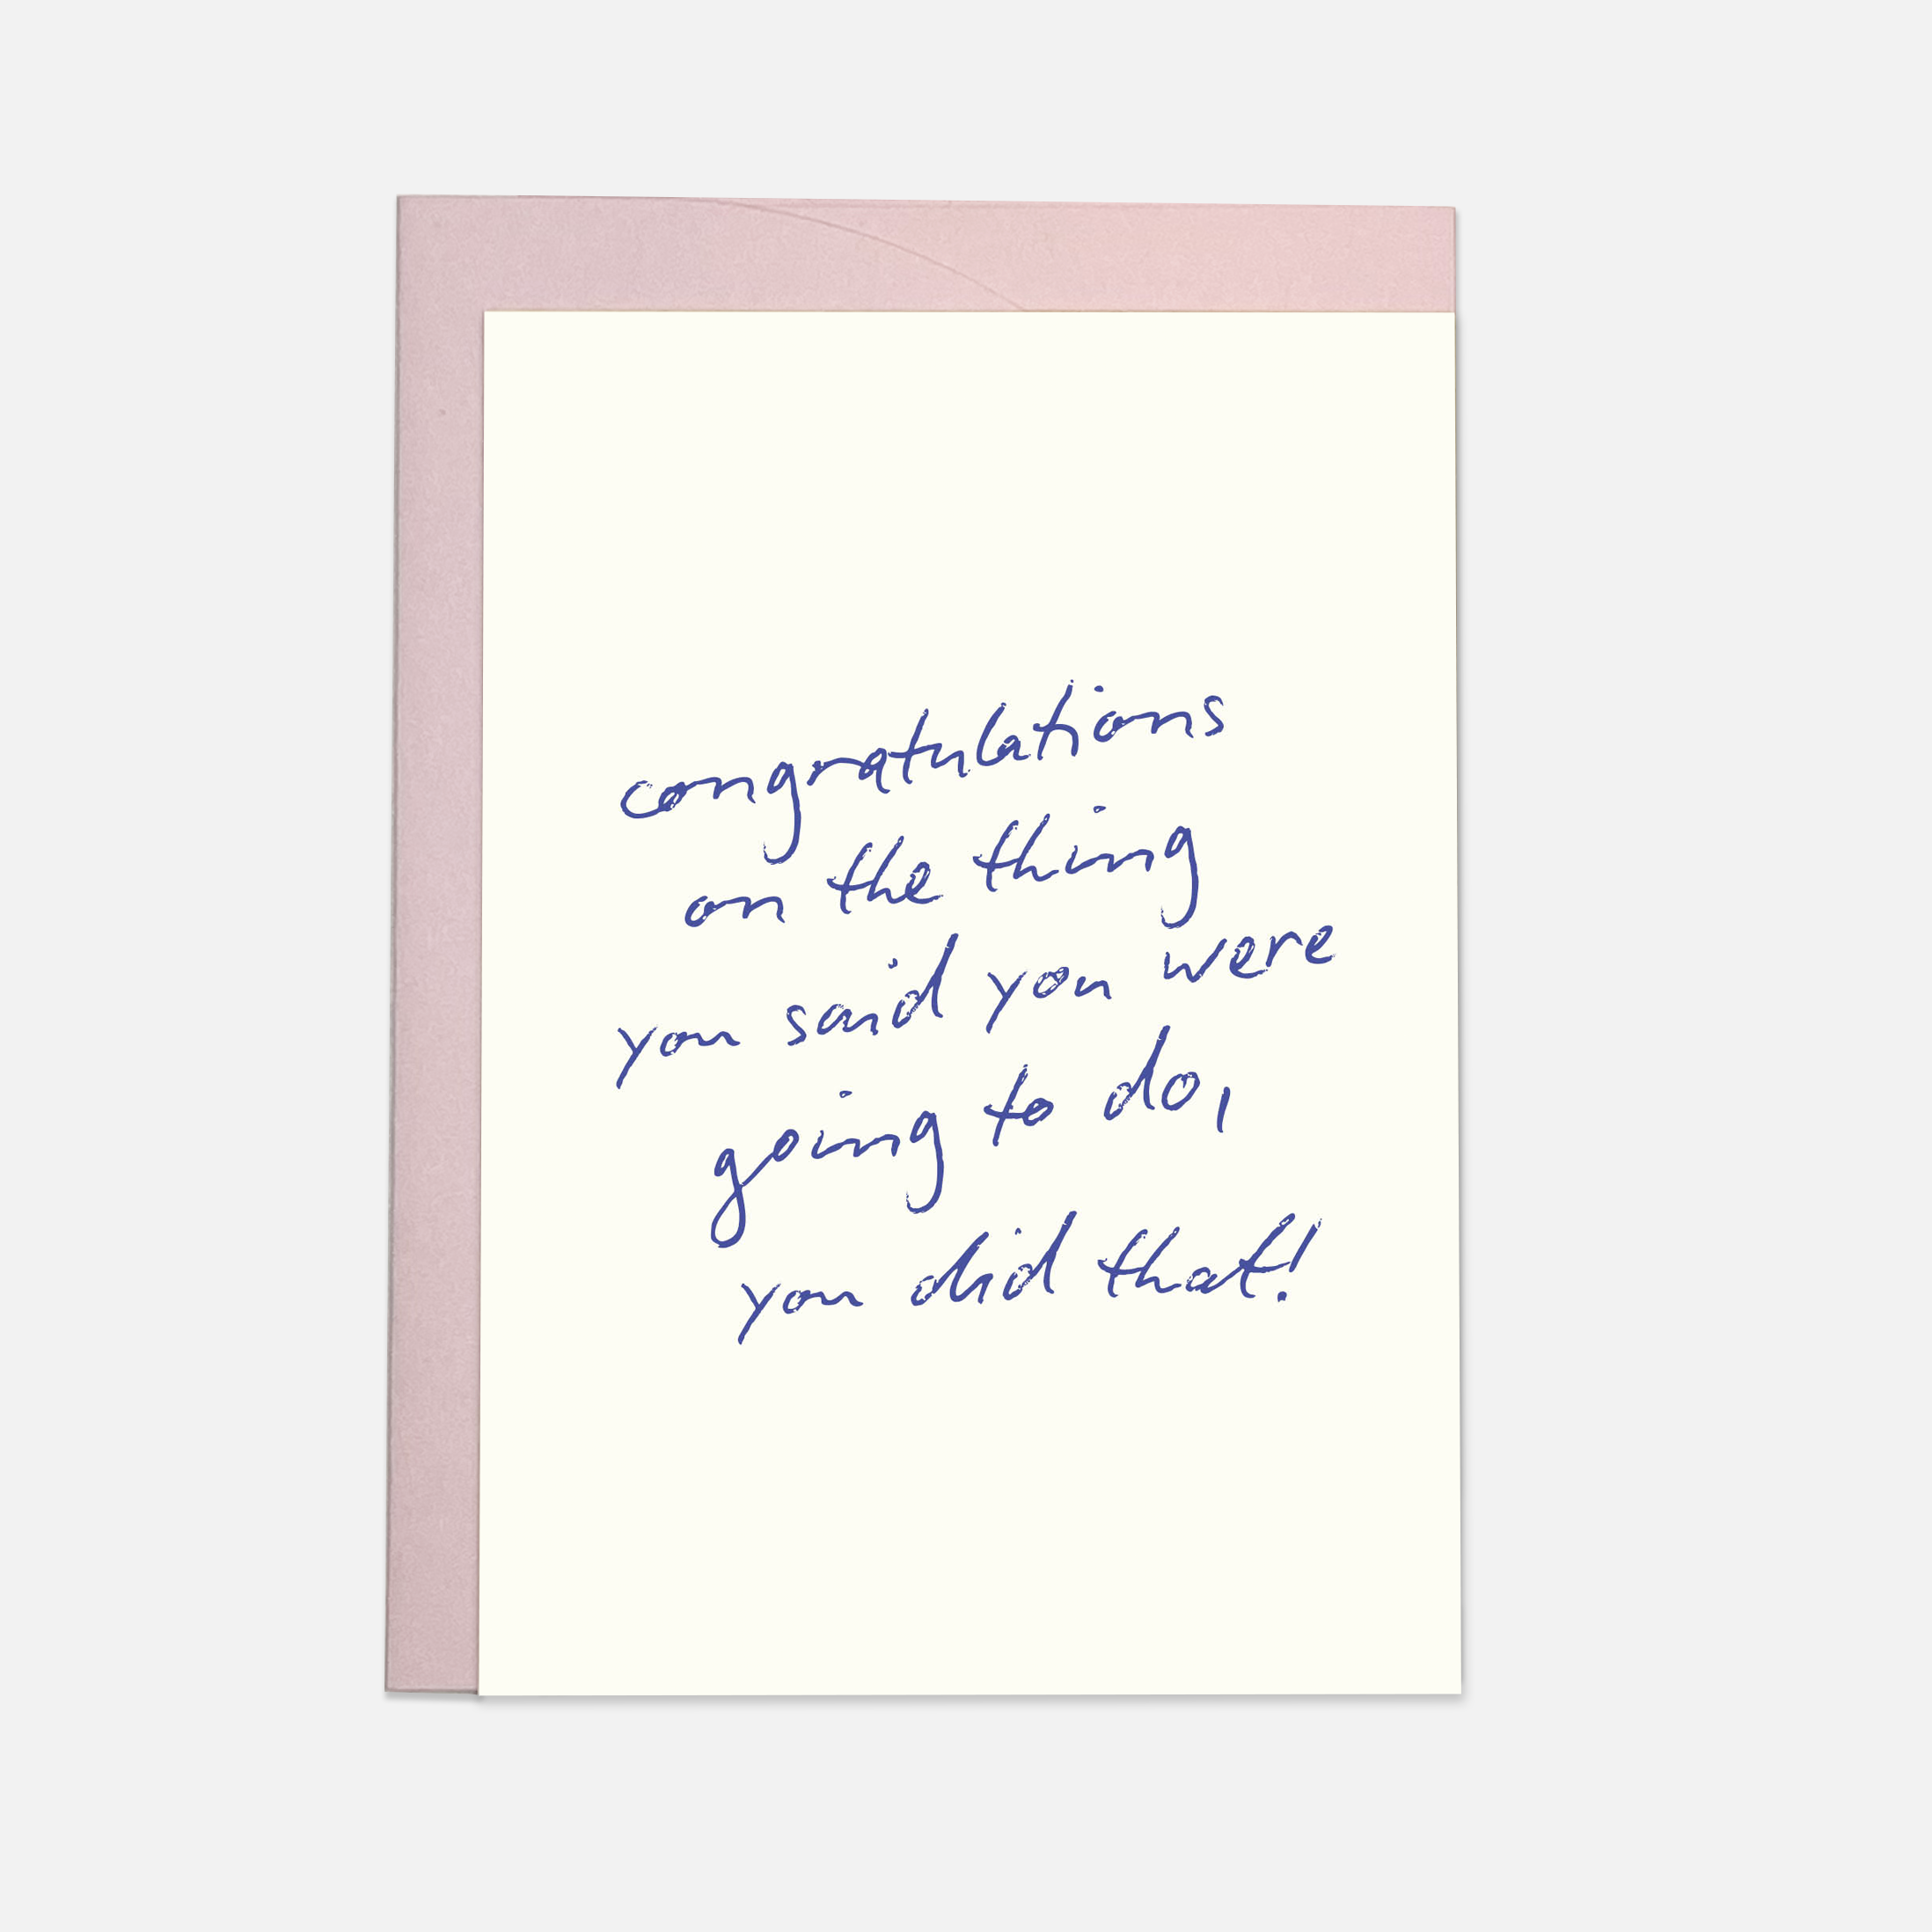 congratulations
on the thing
you said you were
going to do,
you did that!